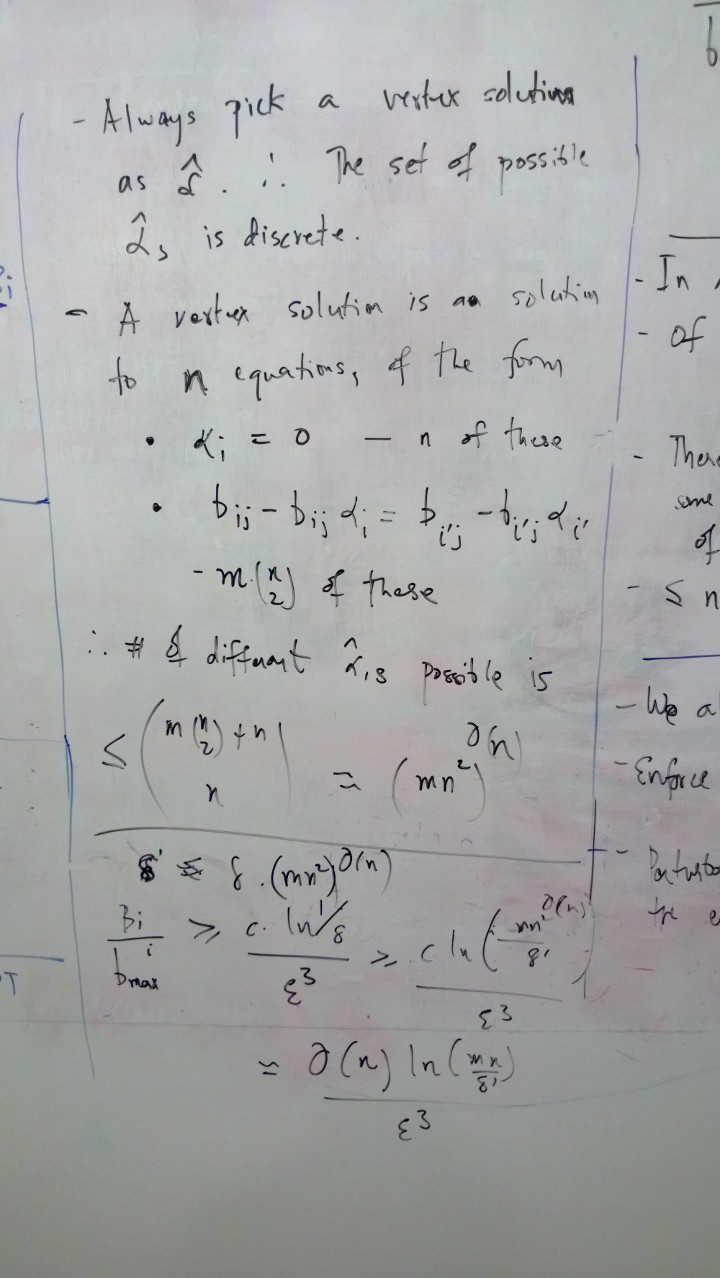 - Always pick a vertex solution
as α̂. ∴ The set of possible
α̂s is discrete.
- A vertex solution is a solution
to n equations, of the form
• αi = 0 — n of these
• bij - bij αi = bi'j - bi'j αi'
- m.(n 2) of these
∴ # of different α̂is possible is
≤ (m(n 2) + n n) ≈ (mn²)^O(n)
δ' ≤ δ.(mn²)^O(n)
Bi / bmax i ≥ c. ln 1/δ / ε3 ≥ c ln (mn^O(n) / δ') / ε3
≈ O(n) ln (mn / δ') / ε3
b
- In
- Of
- There
some
of
- ≤ n
- We a
- Enforce
- Perturba
the e